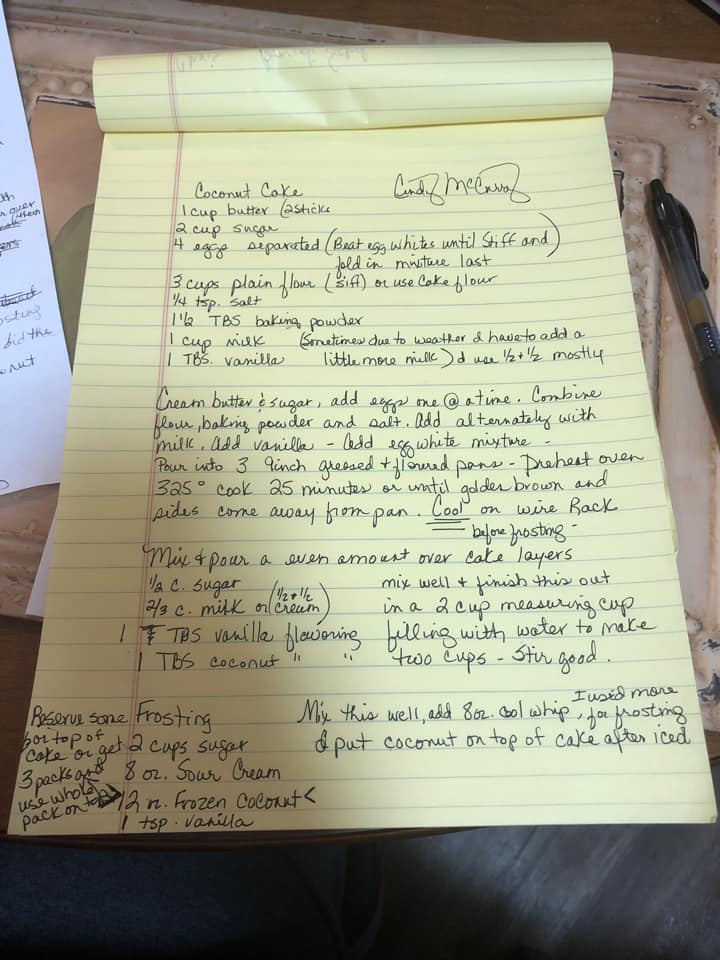 Coconut Cake
1 cup butter (2 sticks
2 cup sugar
4 eggs separated (Beat egg whites until stiff and)
fold in mixture last
3 cups plain flour (sift) or use cake flour
1/4 tsp. salt
1 1/2 TBS baking powder
1 cup milk (Sometimes due to weather I have to add a
1 TBS. vanilla little more milk) I use 1/2 + 1/2 mostly
Cream butter & sugar, add eggs one @ a time. Combine
flour, baking powder and salt. Add alternately with
milk. Add vanilla - Add egg white mixture -
Pour into 3 9inch greased + floured pans - Preheat oven
325° cook 25 minutes or until golden brown and
sides come away from pan. Cool on wire Rack
before frosting -
Mix & pour a even amount over cake layers
1/2 c. sugar
2/3 c. milk or (1/2 + 1/2 cream)
1 TBS vanilla flavoring
1 TBS coconut " "
mix well + finish this out
in a 2 cup measuring cup
filling with water to make
two cups - Stir good.
Reserve some
for top of
cake or get
3 packs and
use whole
pack on top
Frosting
2 cups sugar
8 oz. Sour Cream
12 oz. Frozen Coconut <
1 tsp. vanilla
Mix this well, add 8oz. Cool whip, I used more for frosting
I put coconut on top of cake after iced
did the